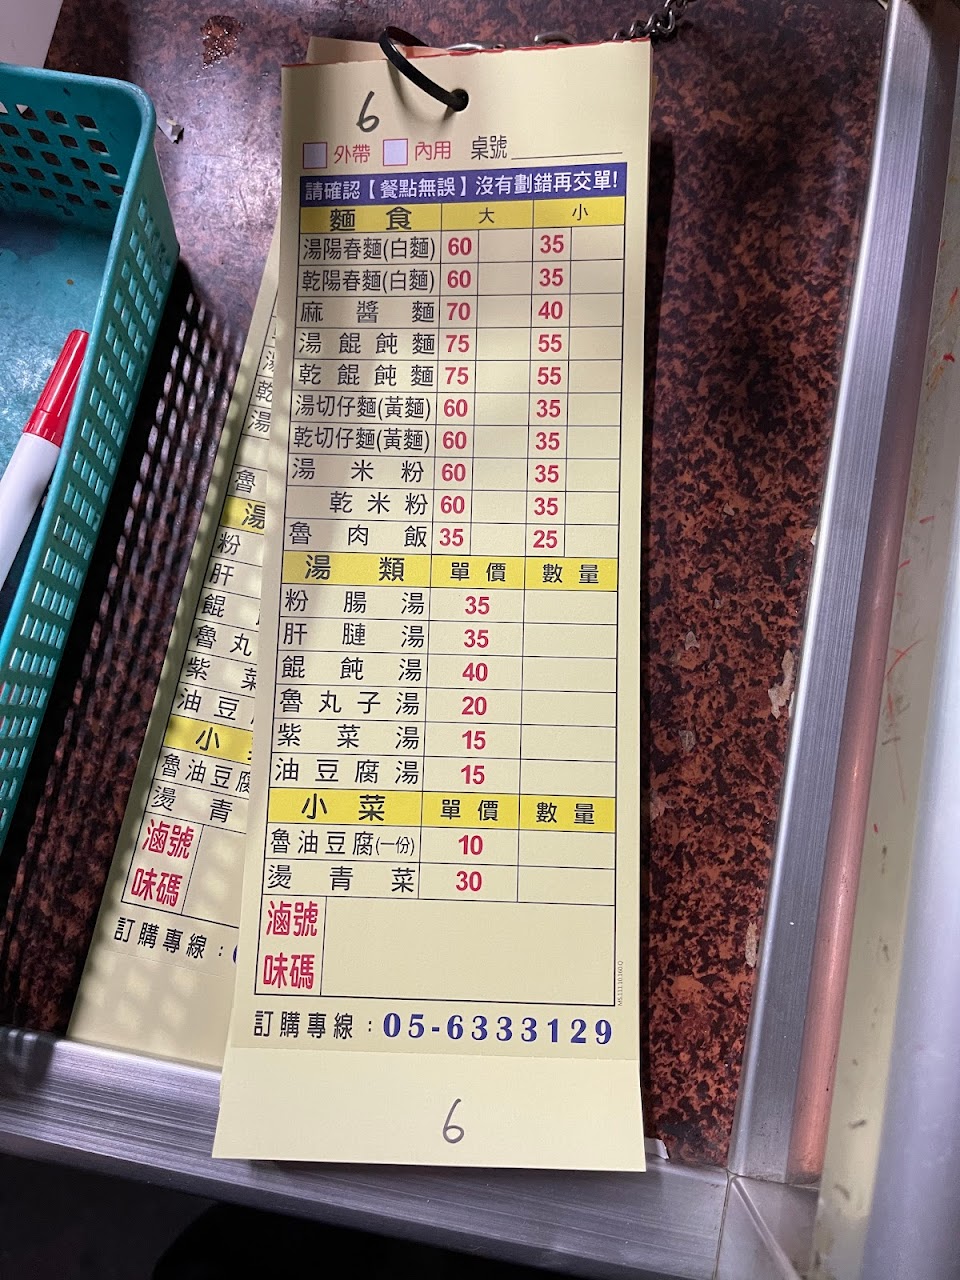 6
外帶 內用 桌號
請確認【餐點無誤】沒有劃錯再交單!
麵食 大 小
湯陽春麵(白麵) 60 35
乾陽春麵(白麵) 60 35
麻醬麵 70 40
湯餛飩麵 75 55
乾餛飩麵 75 55
湯切仔麵(黃麵) 60 35
乾切仔麵(黃麵) 60 35
湯米粉 60 35
乾米粉 60 35
魯肉飯 35 25
湯類 單價 數量
粉腸湯 35
肝腱湯 35
餛飩湯 40
魯丸子湯 20
紫菜湯 15
油豆腐湯 15
小菜 單價 數量
魯油豆腐(一份) 10
燙青菜 30
滷號
味碼
訂購專線:05-6333129
6
湯
乾
湯
魯
湯
粉
肝
餛
魯丸
紫菜
油豆
小
魯油豆腐
燙青
滷號
味碼
訂購專線: